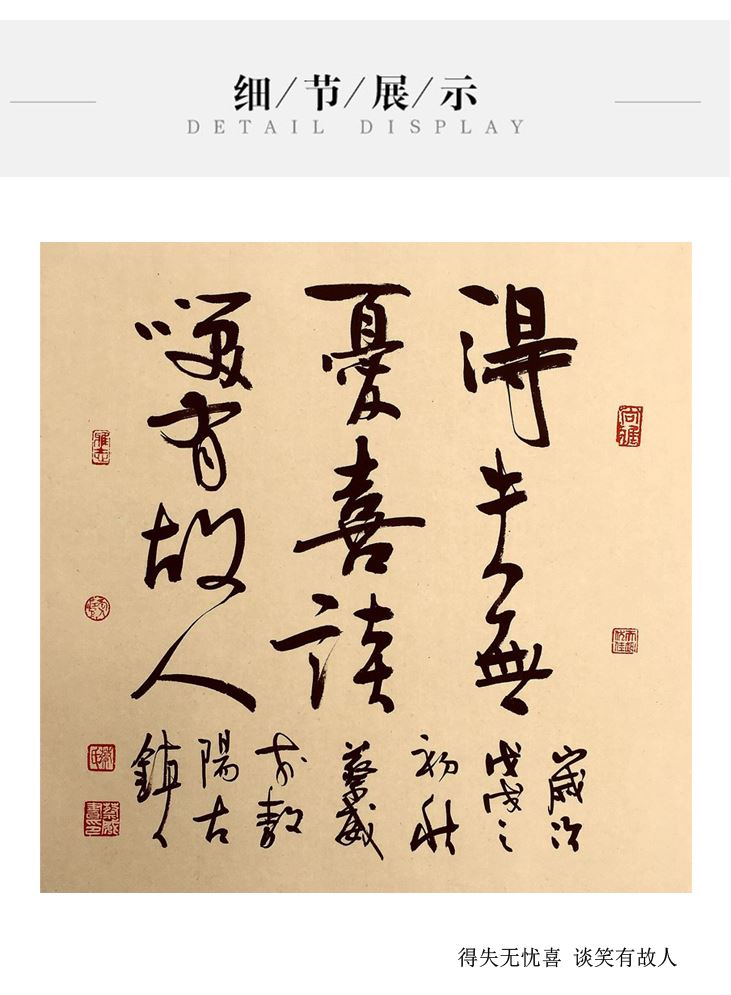 细/节/展/示
DETAIL DISPLAY
得失無
憂喜談
笑有故人
歲次
戊戌之
初秋
蔡威
於敖
陽古
鎮
蔡威書印
得失无忧喜 谈笑有故人